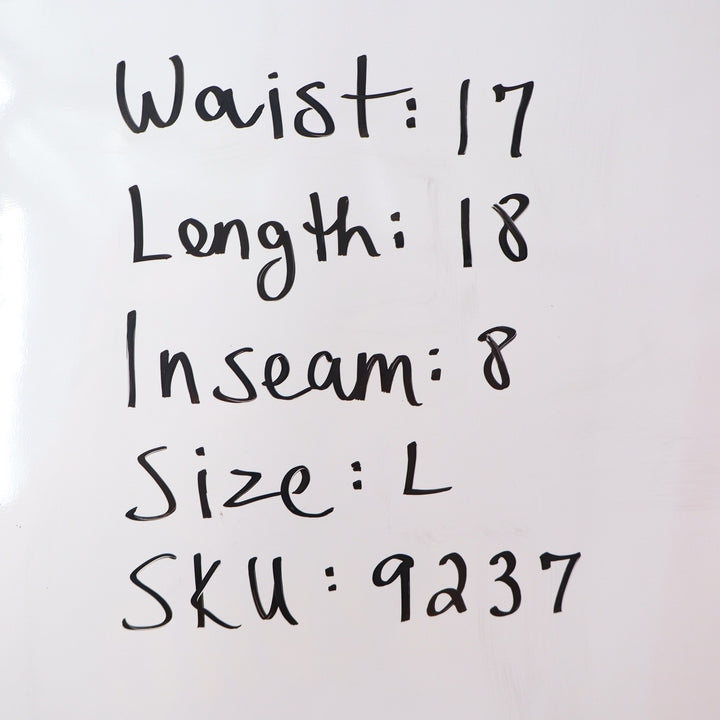 Waist: 17
Length: 18
Inseam: 8
Size: L
SKU: 9237